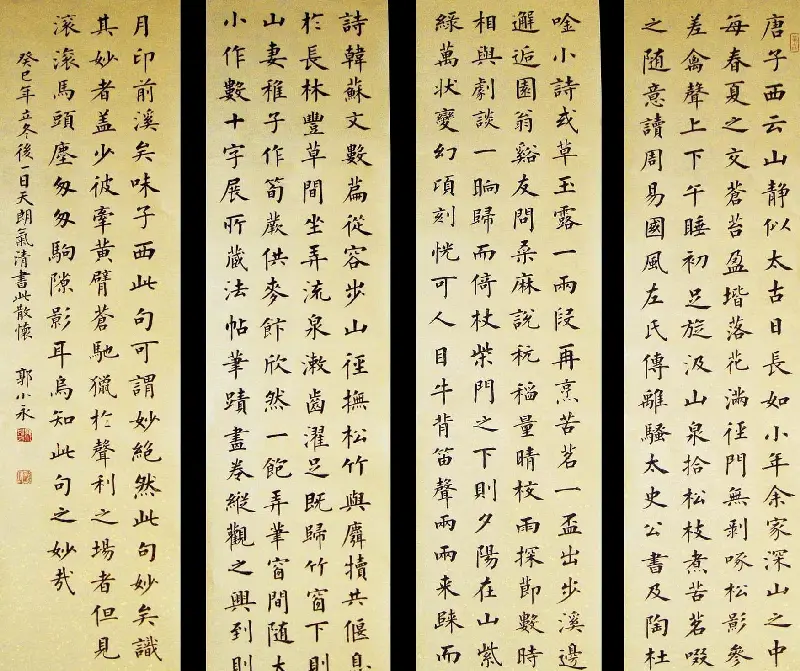 唐子西云山静似太古日長如小年余家深山之中
每春夏之交蒼苔盈堦落花滿徑門無剥啄松影參
差禽聲上下午睡初足旋汲山泉拾松枝煮苦茗啜
之随意讀周易國風左氏傳離騷太史公書及陶杜
唫小詩或草玉露一兩段再烹苦茗一盃出步溪邊
邂逅園翁谿友問桑麻說秔稻量晴校雨探節數時
相與劇談一晌歸而倚杖柴門之下則夕陽在山紫
綠萬狀變幻頃刻恍可人目牛背笛聲兩兩来歸而
詩韓蘇文數篇從容步山徑撫松竹與麛犢共偃息
於長林豐草間坐弄流泉漱齒濯足既歸竹窗下則
山妻稚子作筍蕨供麥飰欣然一飽弄筆窗間随大
小作數十字展所藏法帖筆蹟畫卷縱觀之興到則
月印前溪矣味子西此句可謂妙絶然此句妙矣識
其妙者蓋少彼牽黃臂蒼馳獵於聲利之場者但見
滾滾馬頭塵匆匆駒隙影耳烏知此句之妙哉
癸巳年立冬後一日天朗氣清書此散懷 郭小永